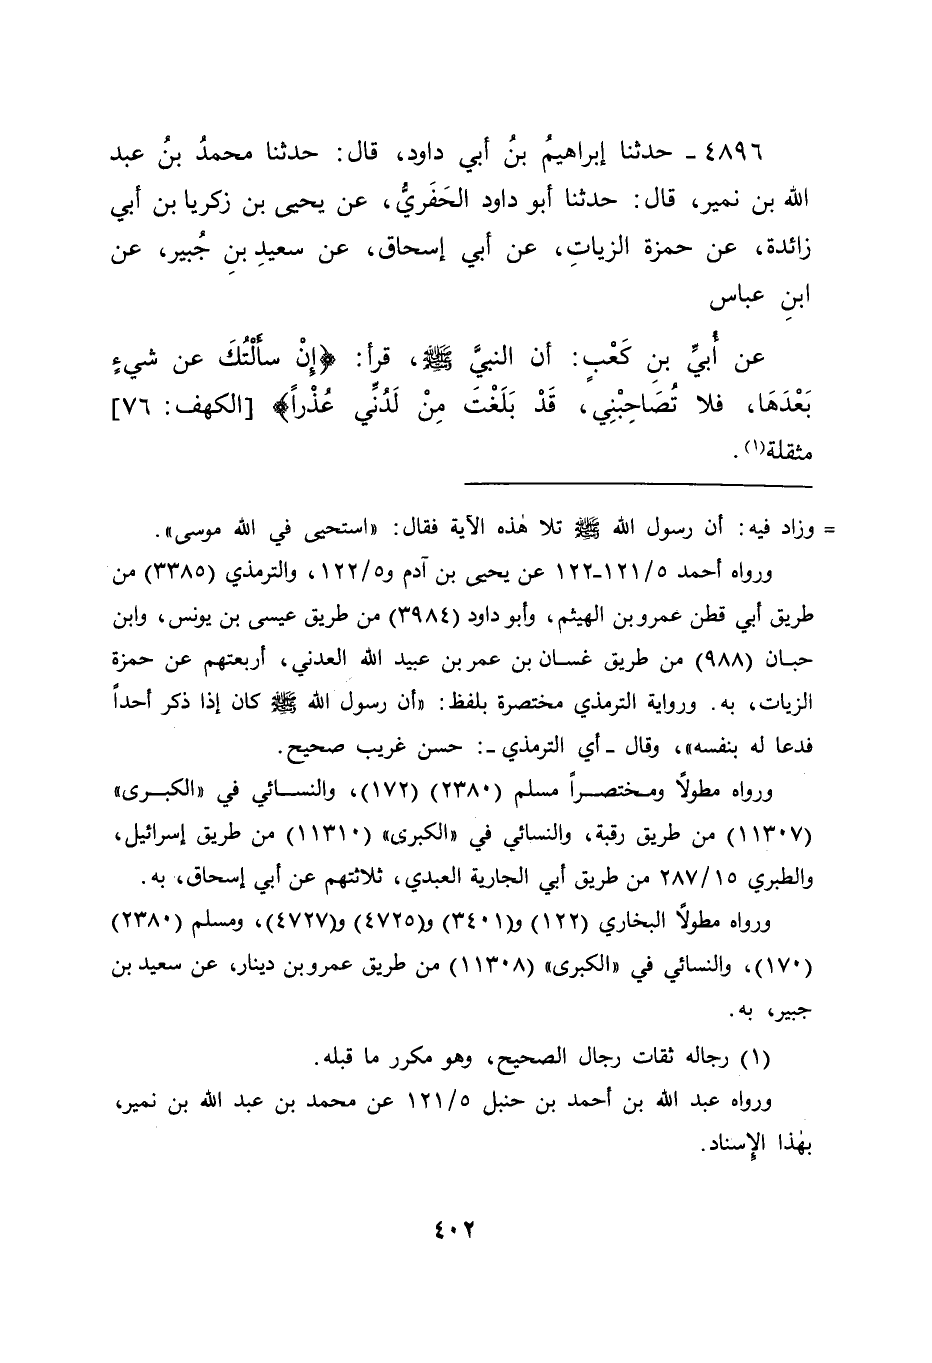 ٤٨٩٦ ـ حدثنا إبراهيمُ بنُ أبي داود، قال: حدثنا محمدُ بنُ عبد
الله بن نمير، قال: حدثنا أبو داود الحَفَريُّ، عن يحيى بن زكريا بن أبي
زائدة، عن حمزة الزياتِ، عن أبي إسحاق، عن سعيدِ بنِ جُبير، عن
ابنِ عباس
عن أُبيِّ بنِ كَعْبٍ: أن النبيَّ ﷺ، قرأ: ﴿إِنْ سأَلْتُكَ عن شيءٍ
بَعْدَهَا، فلا تُصَاحِبْنِي، قَدْ بَلَغْتَ مِنْ لَدُنِّي عُذْراً﴾ [الكهف: ٧٦]
مثقلة(١).
= وزاد فيه: أن رسول الله ﷺ تلا هٰذه الآية فقال: «استحيى في الله موسى».
ورواه أحمد ٥/١٢١-١٢٢ عن يحيى بن آدم و٥/١٢٢، والترمذي (٣٣٨٥) من
طريق أبي قطن عمرو بن الهيثم، وأبو داود (٣٩٨٤) من طريق عيسى بن يونس، وابن
حبـان (٩٨٨) من طريق غسـان بن عمر بن عبيد الله العدني، أربعتهم عن حمزة
الزيات، به. ورواية الترمذي مختصرة بلفظ: «أن رسول الله ﷺ كان إذا ذكر أحداً
فدعا له بنفسه»، وقال ـ أي الترمذي ـ: حسن غريب صحيح.
ورواه مطولاً ومختصـراً مسلم (٢٣٨٠) (١٧٢)، والنسـائي في «الكبـرى»
(١١٣٠٧) من طريق رقبة، والنسائي في «الكبرى» (١١٣١٠) من طريق إسرائيل،
والطبري ١٥/٢٨٧ من طريق أبي الجارية العبدي، ثلاثتهم عن أبي إسحاق، به.
ورواه مطولاً البخاري (١٢٢) و(٣٤٠١) و(٤٧٢٥) و(٤٧٢٧)، ومسلم (٢٣٨٠)
(١٧٠)، والنسائي في «الكبرى» (١١٣٠٨) من طريق عمرو بن دينار، عن سعيد بن
جبير، به.
(١) رجاله ثقات رجال الصحيح، وهو مكرر ما قبله.
ورواه عبد الله بن أحمد بن حنبل ٥/١٢١ عن محمد بن عبد الله بن نمير،
بهٰذا الإِسناد.
٤٠٢